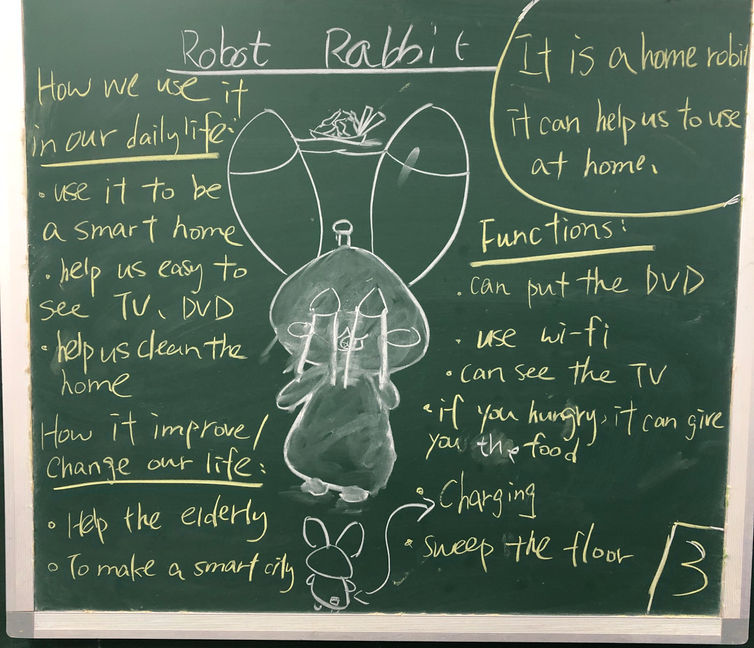 Robot Rabbit
It is a home robit
it can help us to use
at home.
How we use it
in our daily life:
• use it to be
a smart home
• help us easy to
see TV、DVD
• help us clean the
home
How it improve/
change our life:
• Help the elderly
• To make a smart city
Functions:
• can put the DVD
• use wi-fi
• can see the TV
• if you hungry, it can give
you the food
• Charging
• sweep the floor
3